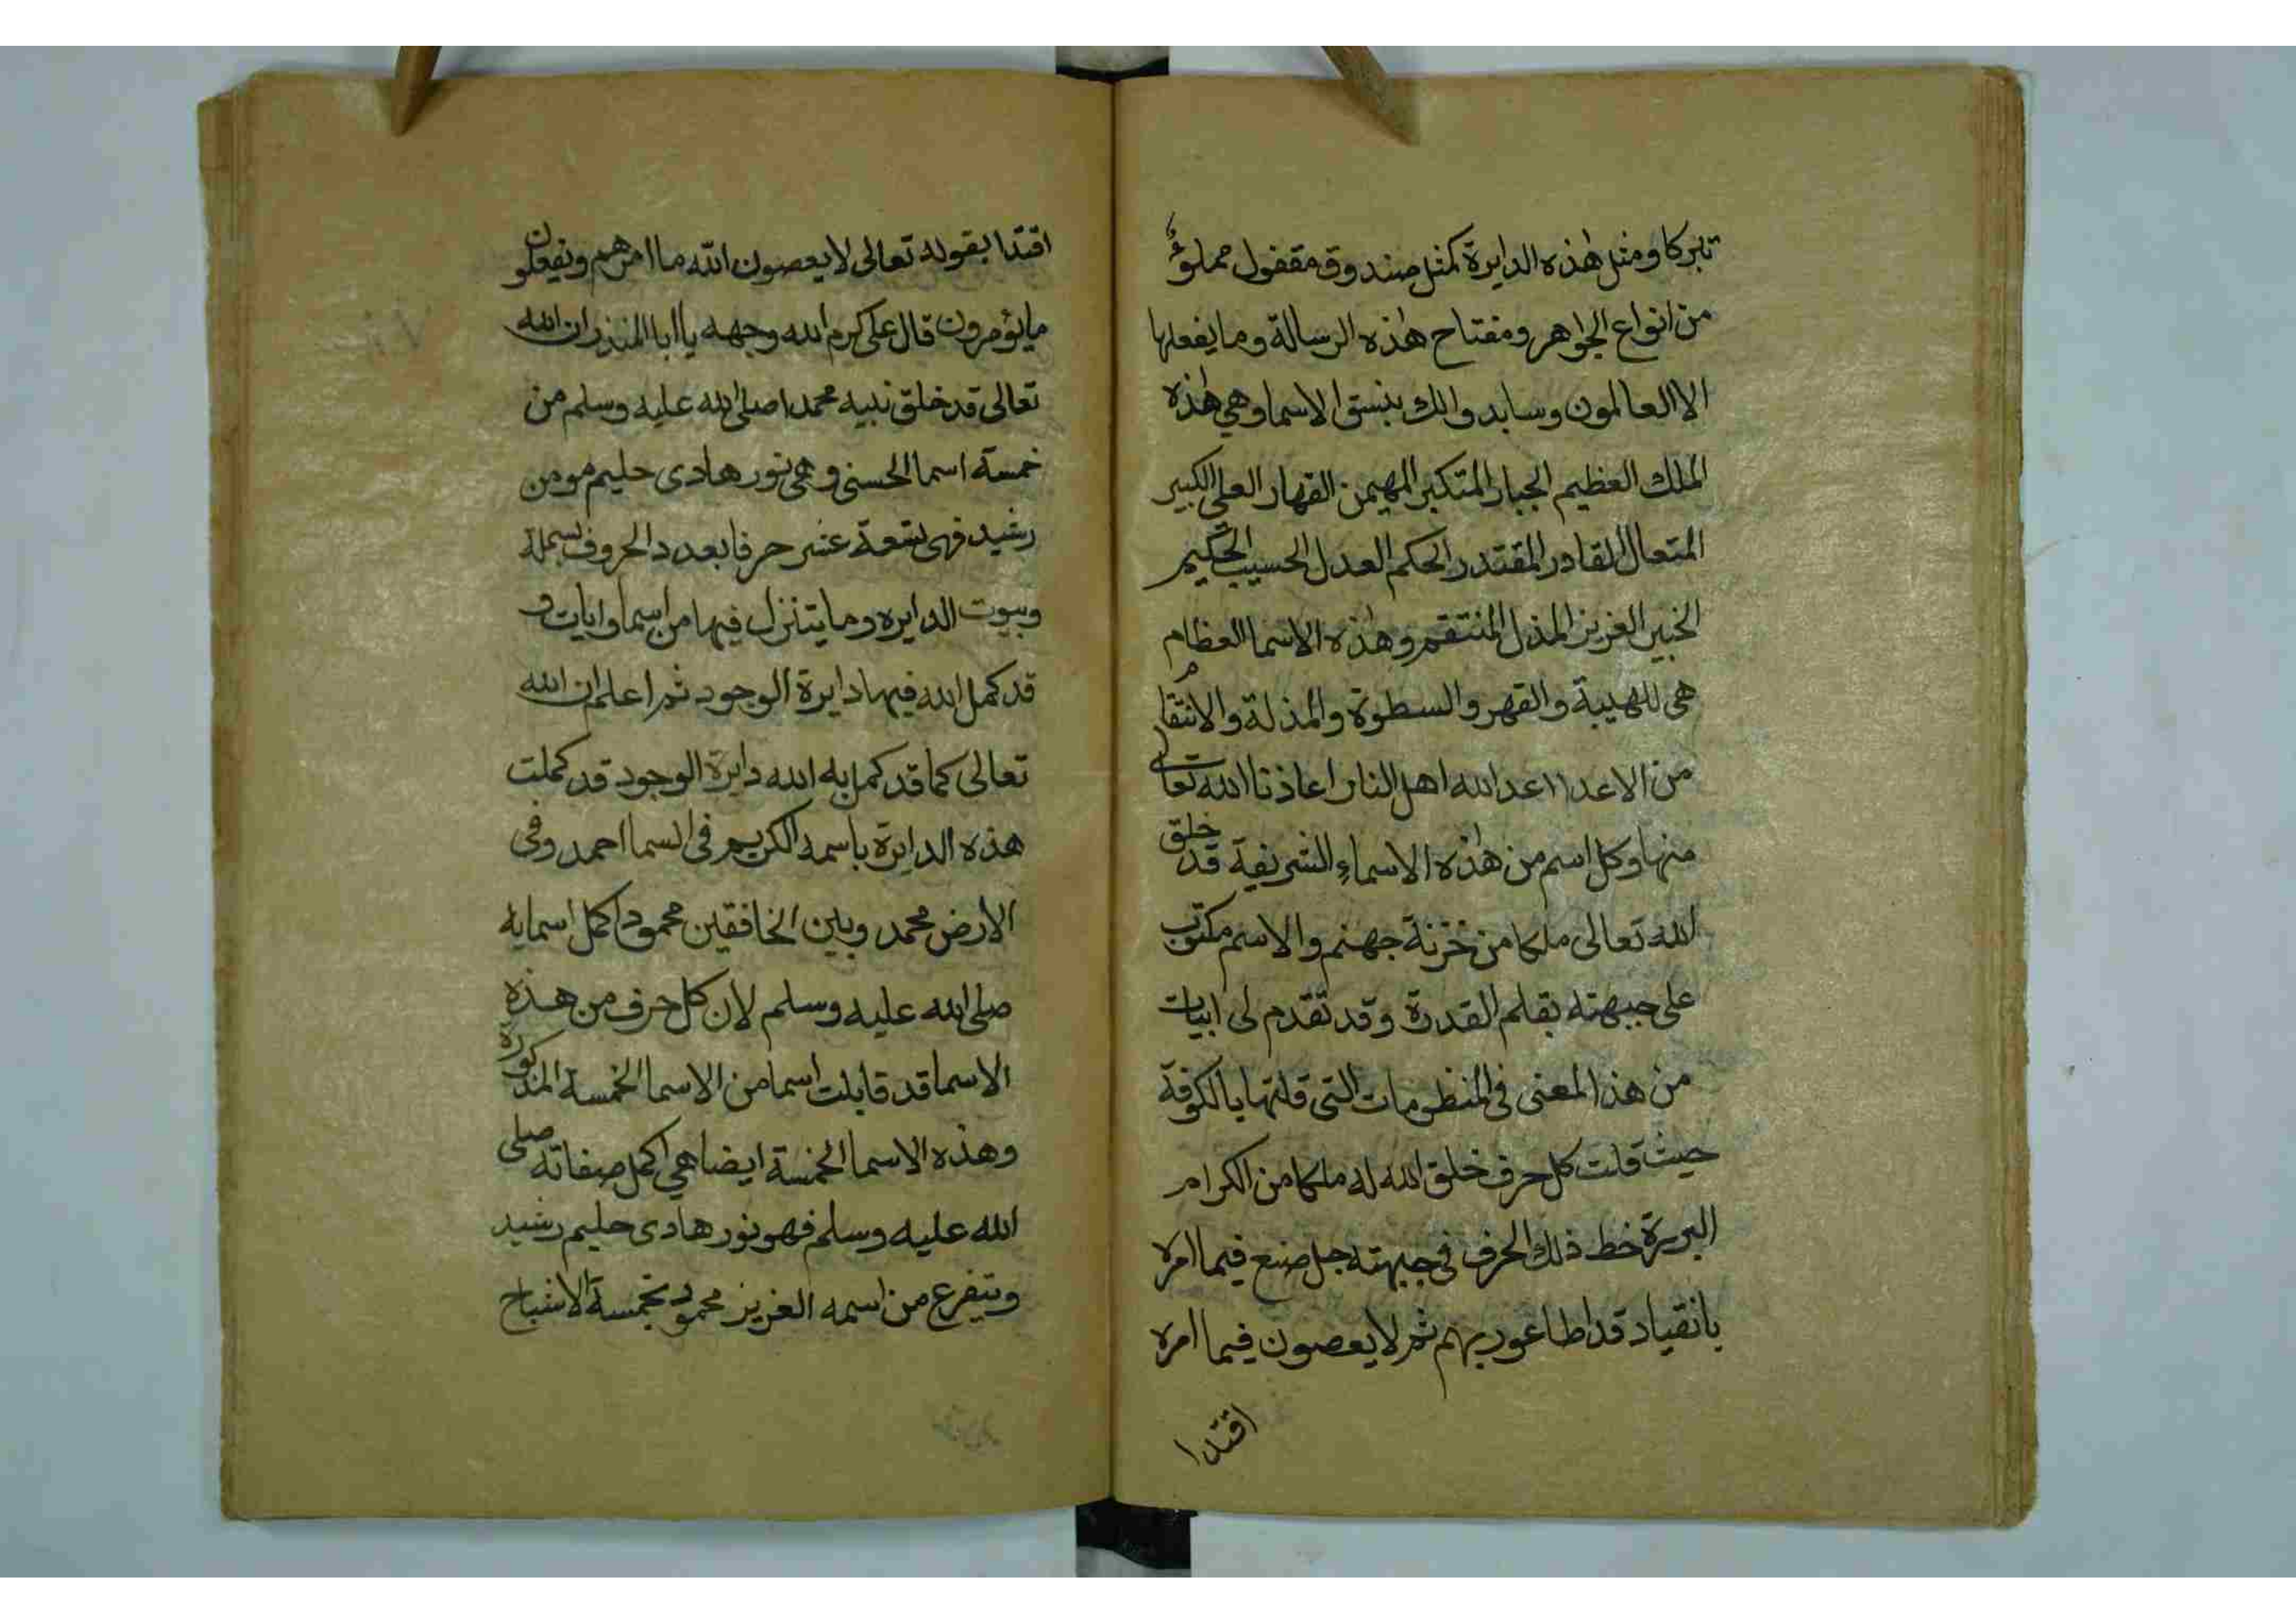 تبركا ومثل هذه الدايرة كمثل صندوق مقفول مملوءٌ
من انواع الجواهر ومفتاح هذه الرسالة وما يفعلها
الا العالمون وسابد والك بنسق الاسما وهي هذه
الملك العظيم الجبار المتكبر المهيمن القهار العلي الكبير
المتعال القادر المقتدر الحكم العدل الحسيب الحكيم
الخبير العزيز المذل المنتقم وهذه الاسما العظام
هى للهيبة والقهر والسطوة والمذلة والانتقام
من الاعدا اعد الله اهل النار اعاذنا الله تعالى
منها وكل اسم من هذه الاسماء الشريفة قد خلق
الله تعالى ملكا من خزنة جهنم والاسم مكتوب
على جبهته بقلم القدرة وقد تقدم لى ابيات
من هذ المعنى فى المنظومات التى قلتها بالكوفة
حيث قلت كل حرف خلق الله له ملكا من الكرام
البررة خط ذلك الحرف فى جبهته جل صنع فيما امره
بانقياد قد اطاعو ربهم ثم لا يعصون فيما امره
اقتدا
اقتدا بقوله تعالى لا يعصون الله ما امرهم ويفعلون
ما يؤمرون قال على كرم الله وجهه يا ابا المنذر ان الله
تعالى قد خلق نبيه محمدا صلى الله عليه وسلم من
خمسة اسما الحسنى وهى نور هادى حليم مومن
رشيد فهى تسعة عشر حرفا بعدد الحروف بسملة
وبيوت الدايره وما يتنزل فيها من اسما وايات و
قد كمل الله فيها دايرة الوجود ثم اعلم ان الله
تعالى كما قد كمل به الله دايرة الوجود قد كملت
هذه الدايرة باسمه الكريم فى السما احمد وفى
الارض محمد وبين الخافقين محمود اكمل اسمايه
صلى الله عليه وسلم لان كل حرف من هذه
الاسما قد قابلت اسما من الاسما الخمسة المذكورة
وهذه الاسما الخمسة ايضا هي اكمل صفاته صلى
الله عليه وسلم فهو نور هادى حليم رشيد
وتيفرع من اسمه العزيز محمود بخمسة الاشباح